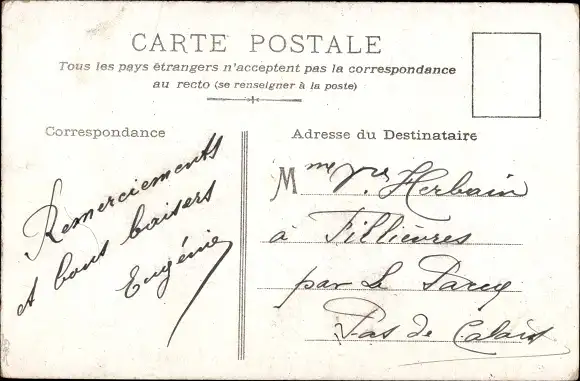 CARTE POSTALE
Tous les pays étrangers n'acceptent pas la correspondance
au recto (se renseigner à la poste)
Correspondance
Remerciements
et bons baisers
Eugénie
Adresse du Destinataire
Mme Vve Herbain
à Fillièvres
par Le Parcq
Pas de Calais